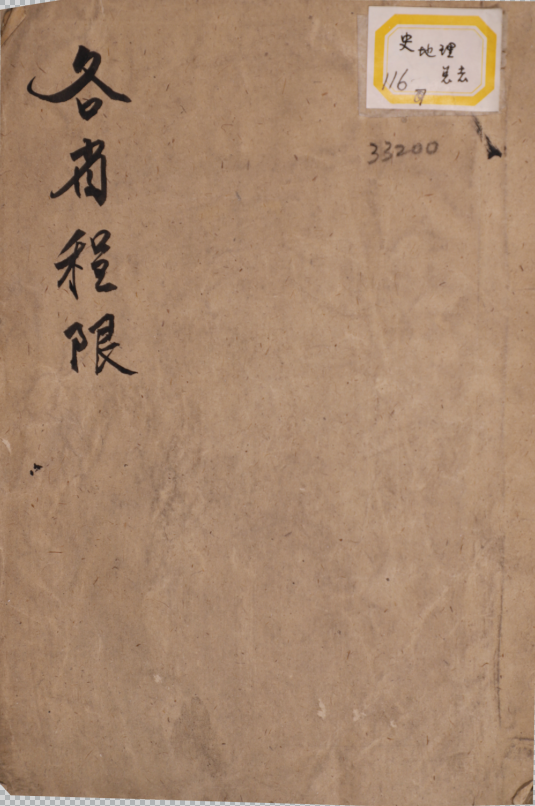 各省程限
史地理
116
33200